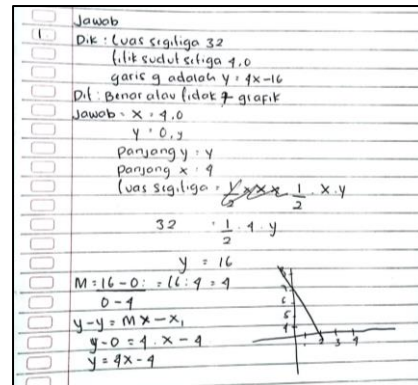 Jawab
1. Dik : Luas segiliga 32
titik sudut sitiga 4.0
garis g adalah y = 4x-16
Dit : Benar atau tidak grafik
Jawab = x = 4.0
y = 0,y
panjang y = y
panjang x = 4
Luas segiliga = 1/2 . x . y
32 = 1/2 . 4 . y
y = 16
M = 16-0 : = 16 : 4 = 4
0-4
y-y = Mx-x1
y-0 = 4 . x-4
y = 4x-4
1 2 3 4